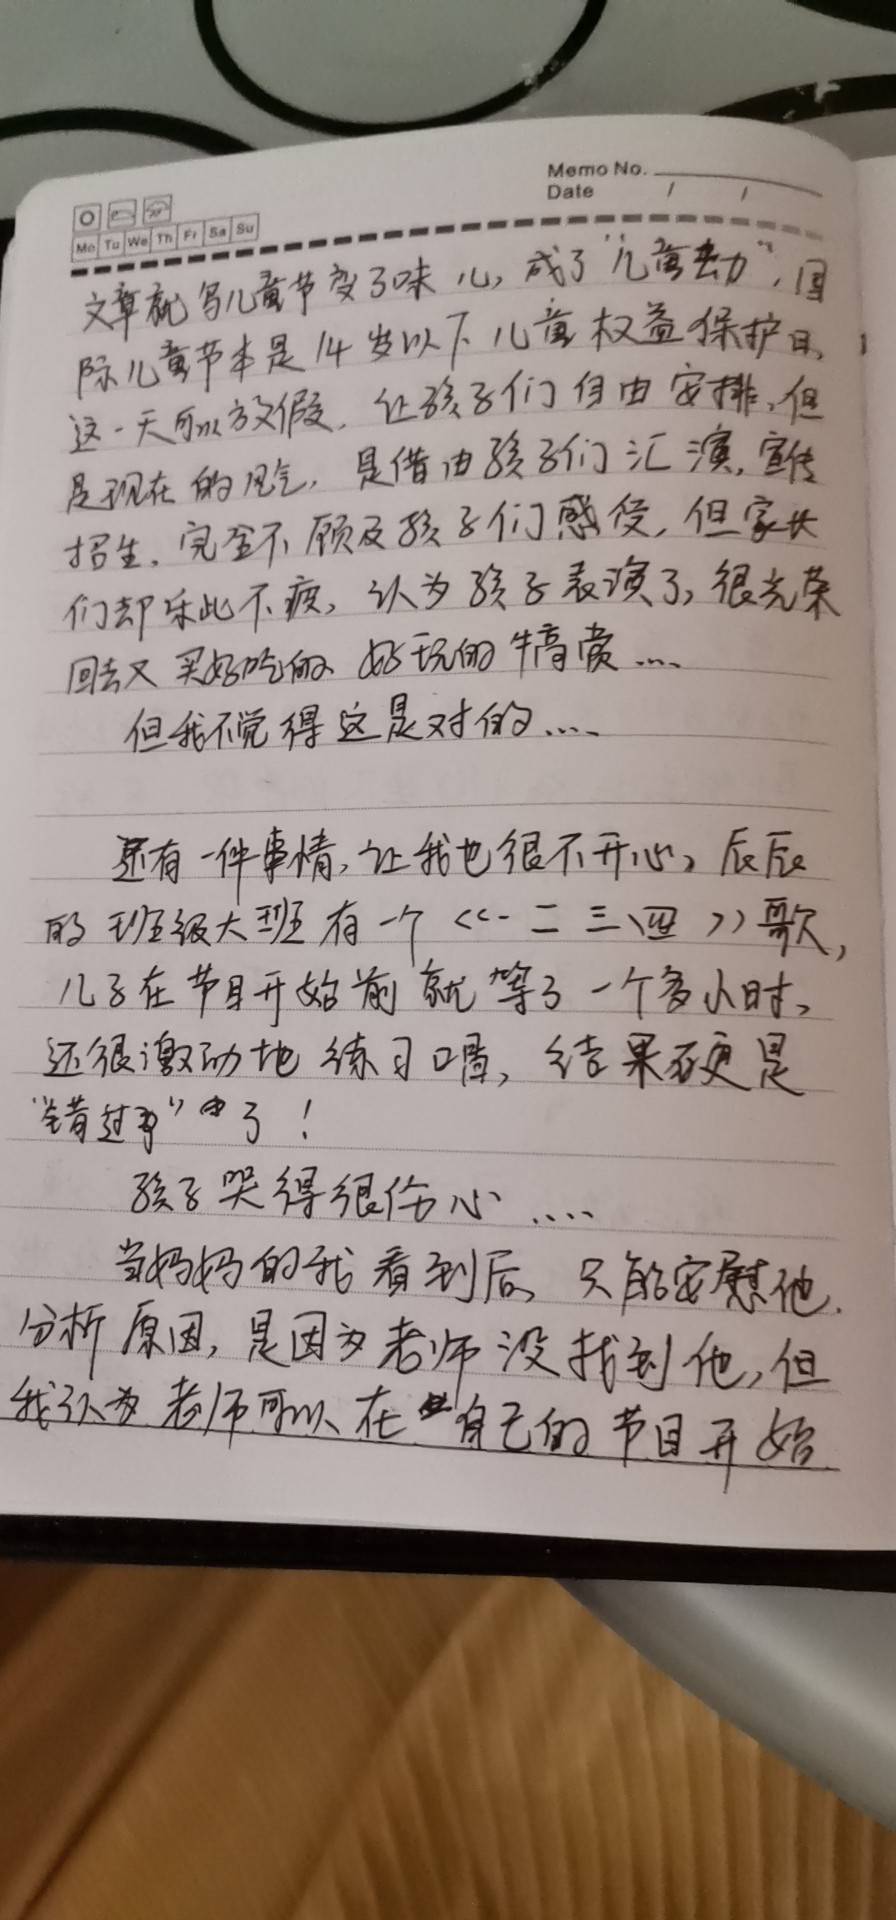 Memo No.
Date / /
Mo Tu We Th Fr Sa Su
文章就写儿童节变了味儿,成了“儿童劫”,国
际儿童节本是14岁以下儿童权益保护日,
这一天可以放假,让孩子们自由安排,但
是现在的风气,是借由孩子们汇演,宣传
招生,完全不顾及孩子们感受,但家长
们却乐此不疲,认为孩子表演了,很光荣
回去又买好吃的、好玩的犒赏....
但我不觉得这是对的....
还有一件事情,让我也很不开心,辰辰
的班级大班有一个<<一二三四>>歌,
儿子在节目开始前就等了一个多小时,
还很激动地练习唱,结果硬是
“错过” 了!
孩子哭得很伤心....
当妈妈的我看到后,只能安慰他.
分析原因,是因为老师没找到他,但
我认为老师可以在自己的节目开始